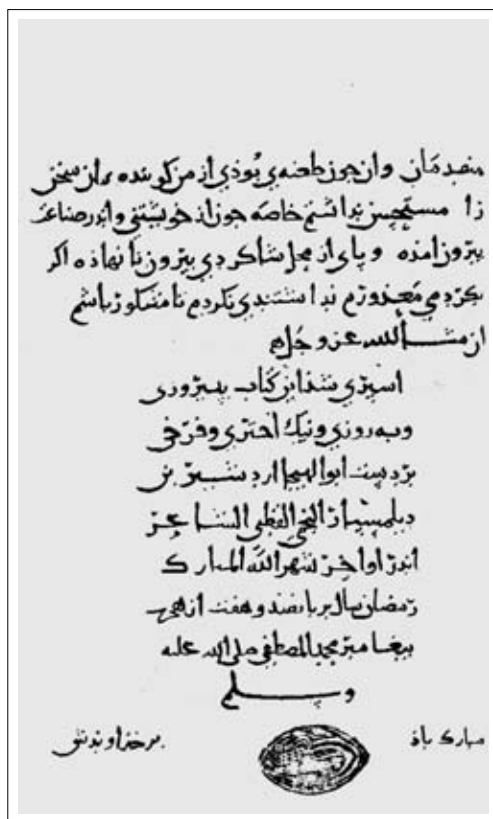 متقدمان وان جون طعنه ي بوذي از من كوينده بران سخن
را مستحسن نداشتم خاصه جون از خويشتني و اندر صناعت
بيرون امذه و پاي از محل شاكردي بيرون نا نهاذه اكر
بكردمي معذورم نداشتندي نكردم تا مشكور باشم
ان شا الله عز وجل
اسپري شذ اين كتاب بپيروزي
و به روزي و نيك اختري و فرخي
بر دست ابو الهيجا اردشير بن
ديلمسپار النجمي القطبي الشاعر
اندر اواخر شهر الله المبارك
رمضان سال بر پانصذ و هفت از هجرت
پيغامبر محمد المصطفي صلي الله عليه
وسلم
مبارك باذ
بر خذاوندش